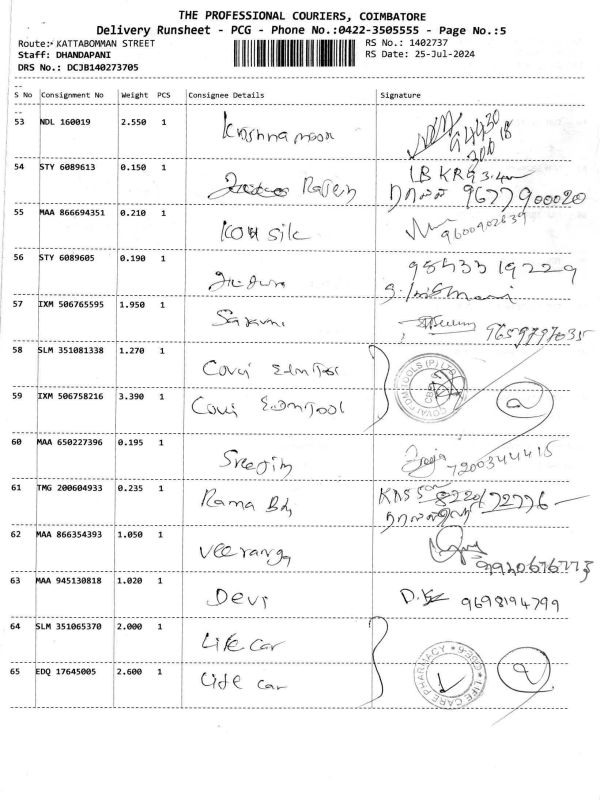 THE PROFESSIONAL COURIERS, COIMBATORE
Delivery Runsheet - PCG - Phone No.:0422-3505555 - Page No.:5
Route: KATTABOMMAN STREET RS No.: 1402737
Staff: DHANDAPANI RS Date: 25-Jul-2024
DRS No.: DCJB140273705
S No Consignment No Weight PCS Consignee Details Signature
53 NDL 160019 2.550 1 Krishna moon
54 STY 6089613 0.150 1 Rajesh LB KRG
96779 00020
55 MAA 866694351 0.210 1 KOVI silk 9600902839
56 STY 6089605 0.190 1 9843319229
57 IXM 506765595 1.950 1 Saravni 9659797035
58 SLM 351081338 1.270 1 Covi
59 IXM 506758216 3.390 1 Covi
COVAI EDMTOOLS (P) LTD
60 MAA 650227396 0.195 1 Sreejin 7200344415
61 TMG 200604933 0.235 1 Rama Bdy 8220172776
62 MAA 866354393 1.050 1 Veeranga
63 MAA 945130818 1.020 1 Devi 9698194799
64 SLM 351065370 2.000 1 Life car
65 EDQ 17645005 2.600 1 Life car
LIFE CARE PHARMACY